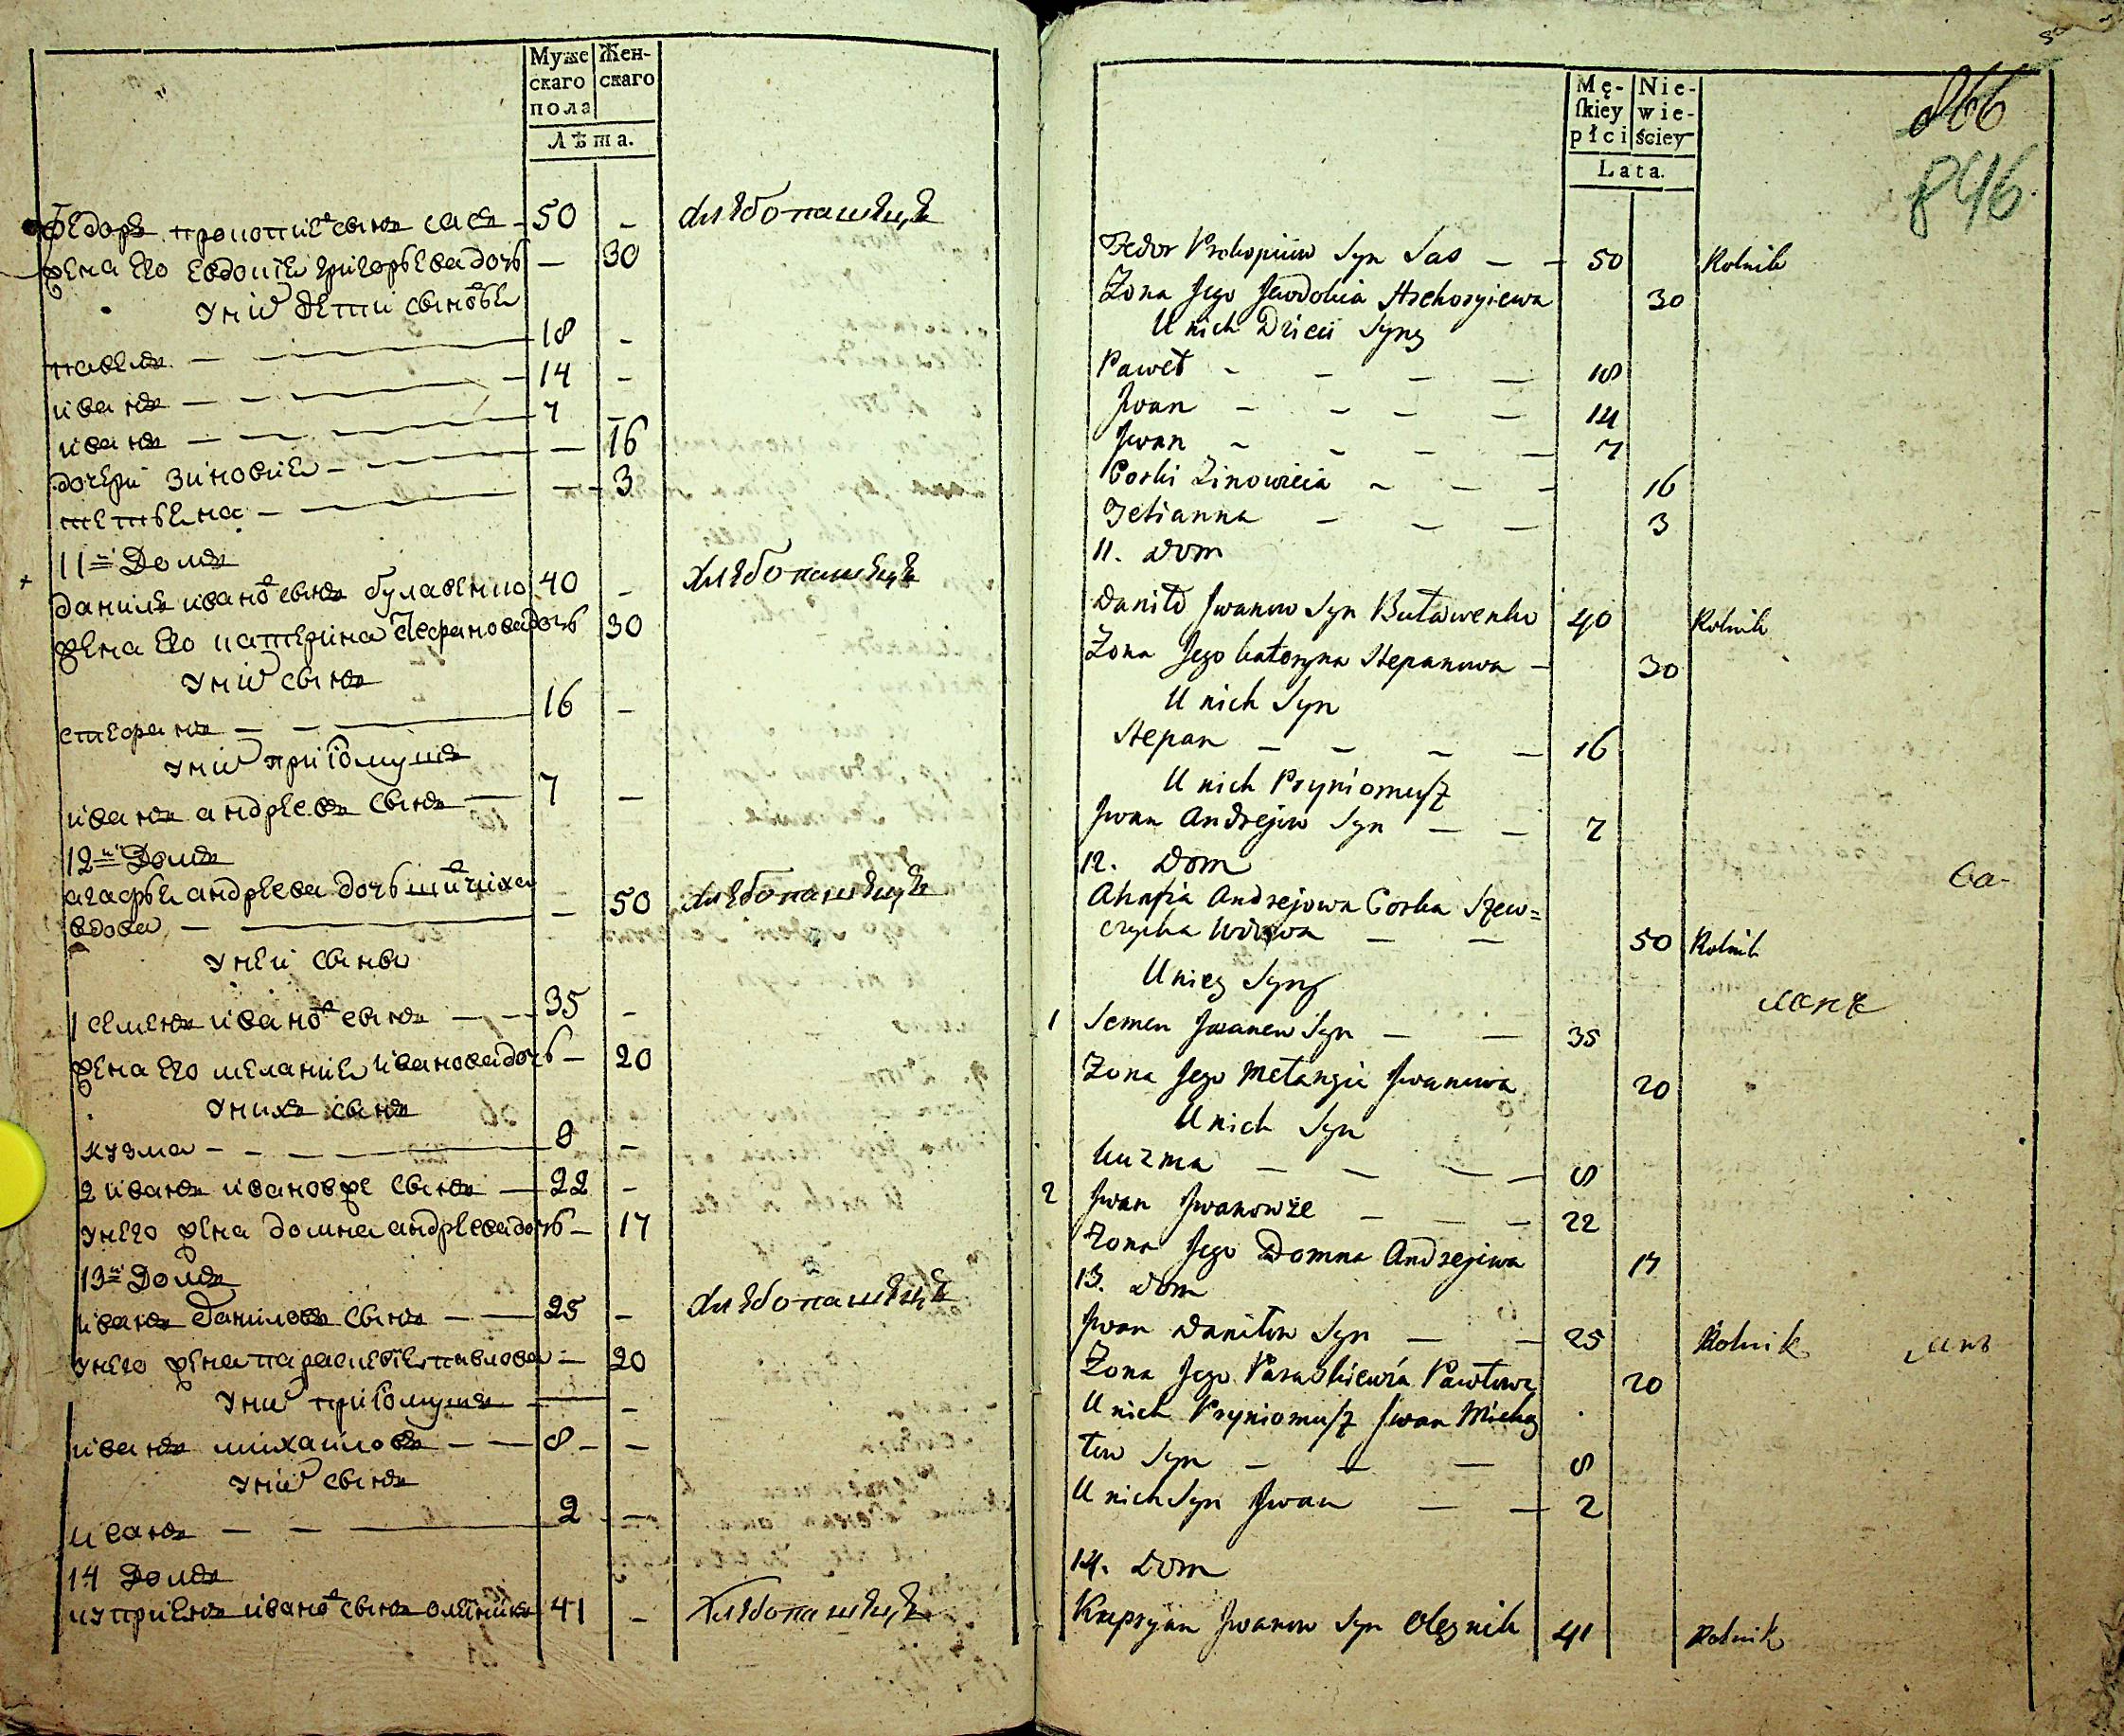 Муже Жен-
скаго скаго
пола
Лѣта.
Федоръ прокопиев сынъ сасъ - 50 -
жена его евдокия григорьева дочь - 30
у них дети сыновья
павелъ - 18 -
иванъ - 14 -
иванъ - 7 -
дочери зиновия - 16
тетьяна - 3
11й Домъ
данила иванов сынъ булавенко 40 -
жена его катерина стефанова дочь 30
у них сынъ
стефанъ - 16 -
у них приiомушъ
иванъ андреевъ сынъ - 7 -
12й Домъ
агафья андреева дочь
вдова - 50
у неи сынъи
1 семенъ иванов сынъ - 35 -
жена его мелания иванова дочь - 20
у нихъ сынъ
кузма - 8 -
2 иванъ ивановже сынъ - 22 -
у него жена домна андреева дочь - 17
13й Домъ
иванъ даниловъ сынъ - 25 -
у него жена параскевия павлова - 20
у них приiомушъ -
иванъ михаиловъ - 8 -
у них сынъ
иванъ - 2 -
14 Домъ
куприянъ иванов сынъ олейникъ 41 -
хлебопашецъ
хлебопашецъ
хлебопашецъ
хлебопашецъ
хлебопашецъ
866
846
Mę- Nie-
ſkiey wie-
płci ściey
Lata.
Fedor Prokopiiw Syn Sas - 50 Rolnik
Żona Jego Jewdokia Hrehoryiewa 30
U nich Dzieci Syny
Paweł - 18
Jwan - 14
Jwan - 7
Corki Zinowieia - 16
Tetianna - 3
11. Dom
Daniło Jwanow Syn Buławenko 40 Rolnik
Żona Jego Katerzyna Stepanowa - 30
U nich Syn
Stepan - 16
U nich Pryiomusz
Jwan Andrejow Syn - 7
12. Dom
Ahafia Andrejowa Corka Szew=
czycha Wdowa - 50 Rolnik
U niey Syny
1 Semen Jwanow Syn - 35
Żona Jego Mełangia Jwanowa 20
U nich Syn
Kuzma - 8
2 Jwan Jwanowże - 22
Żona Jego Domna Andrejewa 17
13. Dom
Jwan Daniłow Syn - 25 Rolnik
Żona Jego Paraskiewia Pawłowa 20
U nich Pryniomusz Jwan Micha
łow Syn - 8
U nich Syn Jwan - 2
14. Dom
Kupryan Jwanow Syn Oleynik 41 Rolnik